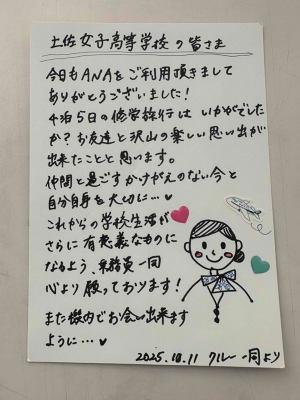 土佐女子高等学校の皆さま
今日もANAをご利用頂きまして
ありがとうございました!
4泊5日の修学旅行はいかがでした
か?お友達と沢山の楽しい思い出が
出来たことと思います。
仲間と過ごすかけがえのない今と
自分自身を大切に…♥
これからの学校生活が
さらに有意義なものに
なるよう、乗務員一同
心より願っております!
また機内でお会い出来ます
ように…♥
2025.10.11 クルー一同より